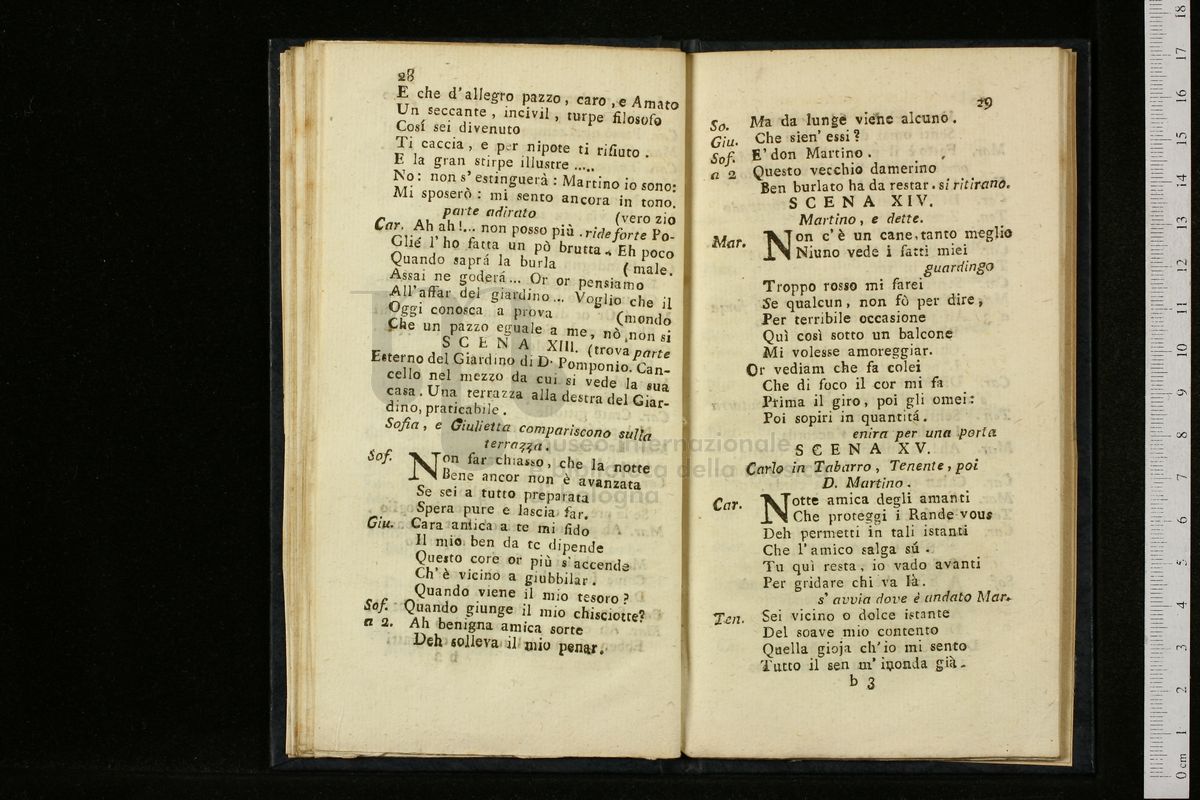 28
E che d'allegro pazzo, caro, e Amato
Un seccante, incivil, turpe filosofo
Così sei divenuto
Ti caccia, e per nipote ti rifiuto.
E la gran stirpe illustre .....
No: non s'estinguerà: Martino io sono:
Mi sposerò: mi sento ancora in tono.
parte adirato (vero zio
Car. Ah ah!... non posso più. ride forte Po-
Gliè l'ho fatta un pò brutta.. Eh poco
Quando saprá la burla ( male.
Assai ne goderá... Or or pensiamo
All'affar del giardino... Voglio che il
Oggi conosca a prova (mondo
Che un pazzo eguale a me, nò, non si
SCENA XIII. (trova parte
Esterno del Giardino di D. Pomponio. Can-
cello nel mezzo da cui si vede la sua
casa. Una terrazza alla destra del Giar-
dino, praticabile.
Sofia, e Giulietta compariscono sulla
terrazza.
Sof. Non far chiasso, che la notte
Bene ancor non è avanzata
Se sei a tutto preparata
Spera pure e lascia far.
Giu. Cara amica a te mi fido
Il mio ben da te dipende
Questo core or più s'accende
Ch'è vicino a giubbilar.
Quando viene il mio tesoro?
Sof. Quando giunge il mio chisciotte?
a 2. Ah benigna amica sorte
Deh solleva il mio penar.
29
So. Ma da lunge viene alcuno.
Giu. Che sien' essi?
Sof. E' don Martino.
a 2 Questo vecchio damerino
Ben burlato ha da restar. si ritirano.
SCENA XIV.
Martino, e dette.
Mar. Non c'è un cane, tanto meglio
Niuno vede i fatti miei
guardingo
Troppo rosso mi farei
Se qualcun, non fò per dire,
Per terribile occasione
Quì così sotto un balcone
Mi volesse amoreggiar.
Or vediam che fa colei
Che di foco il cor mi fa
Prima il giro, poi gli omei:
Poi sopiri in quantitá.
enira per una porta
SCENA XV.
Carlo in Tabarro, Tenente, poi
D. Martino.
Car. Notte amica degli amanti
Che proteggi i Rande-vous
Deh permetti in tali istanti
Che l'amico salga sú.
Tu quì resta, io vado avanti
Per gridare chi va là.
s' avvia dove è andato Mar.
Ten. Sei vicino o dolce istante
Del soave mio contento
Quella gioja ch'io mi sento
Tutto il sen m'inonda già.
b 3
museo internazionale
e biblioteca della musica
bologna
0 cm 1 2 3 4 5 6 7 8 9 10 11 12 13 14 15 16 17 18